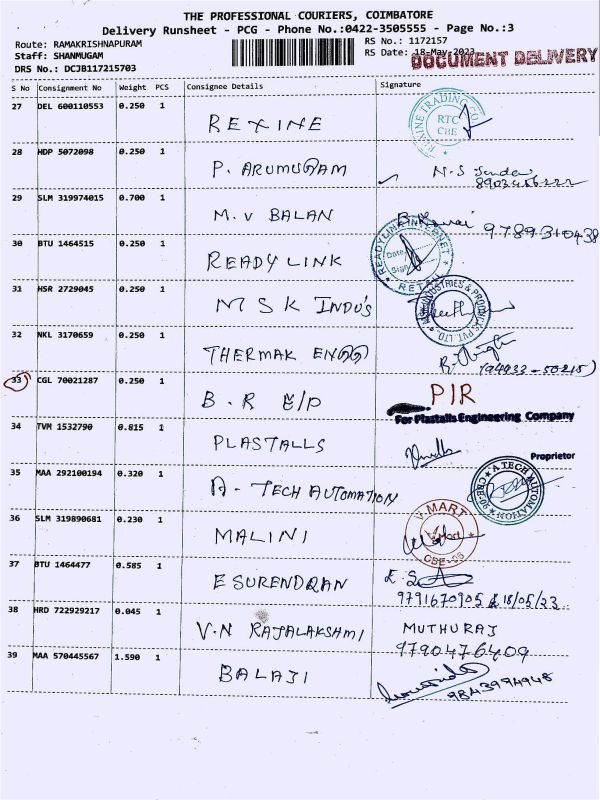 THE PROFESSIONAL COURIERS, COIMBATORE
Delivery Runsheet - PCG - Phone No.:0422-3505555 - Page No.:3
Route: RAMAKRISHNAPURAM RS No.: 1172157
Staff: SHANMUGAM RS Date: 18-May-2023
DOCUMENT DELIVERY
DRS No.: DCJB117215703
S No Consignment No Weight PCS Consignee Details Signature
27 DEL 600110553 0.250 1 REXINE
TRADING CO
RTC
CBE
28 HDP 5072098 0.250 1 P. ARUMUGAM N.S
29 SLM 319974015 0.700 1 M.V BALAN 9789310438
30 BTU 1464515 0.250 1 READY LINK
READYLINK INTERNET
Date
Sign
RETAIL
31 HSR 2729045 0.250 1 MSK INDU'S
INDUSTRIES & PRODUCTS PVT. LTD.
32 NKL 3170659 0.250 1 THERMAK ENGG
33 CGL 70021287 0.250 1 B.R E/P PIR
For Plastalls Engineering Company
34 TVM 1532790 0.815 1 PLASTALLS
Proprietor
35 MAA 292100194 0.320 1 A-TECH AUTOMATION
A.TECH AUTOMATION
CBE-06
36 SLM 319890681 0.230 1 MALINI
V-MART
V-Mart
CBE-06
37 BTU 1464477 0.585 1 E SURENDRAN E.S
9791670905 18/05/23
38 HRD 722929217 0.045 1 V.N RAJALAKSHMI MUTHURAJ
9790476409
39 MAA 570445567 1.590 1 BALAJI
9843994948